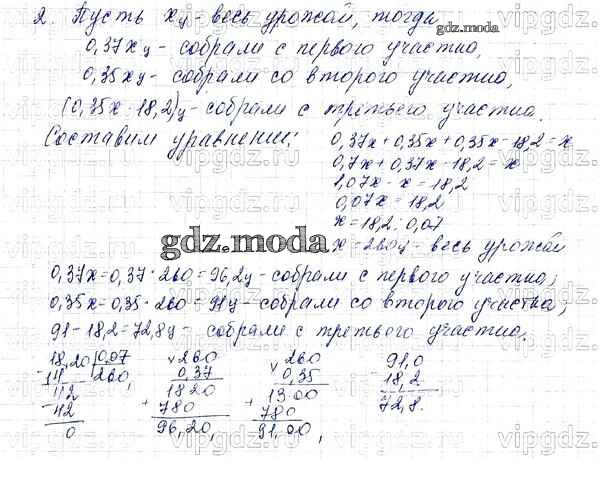 2. Пусть х ц - весь урожай, тогда
0,37х ц - собрали с первого участка,
0,35х ц - собрали со второго участка,
(0,35х - 18,2) ц - собрали с третьего участка.
Составим уравнение:
0,37х + 0,35х + 0,35х - 18,2 = х
0,7х + 0,37х - 18,2 = х
1,07х - х = 18,2
0,07х = 18,2
х = 18,2 : 0,07
gdz.moda
х = 260 ц - весь урожай
0,37х = 0,37 · 260 = 96,2 ц - собрали с первого участка;
0,35х = 0,35 · 260 = 91 ц - собрали со второго участка;
91 - 18,2 = 72,8 ц - собрали с третьего участка.
18,20 0,07 260 260 91,0
14 260, 0,37 0,35 18,2
42 1820 1300 72,8.
42 780 780
0 96,20, 91,00,
vipgdz.